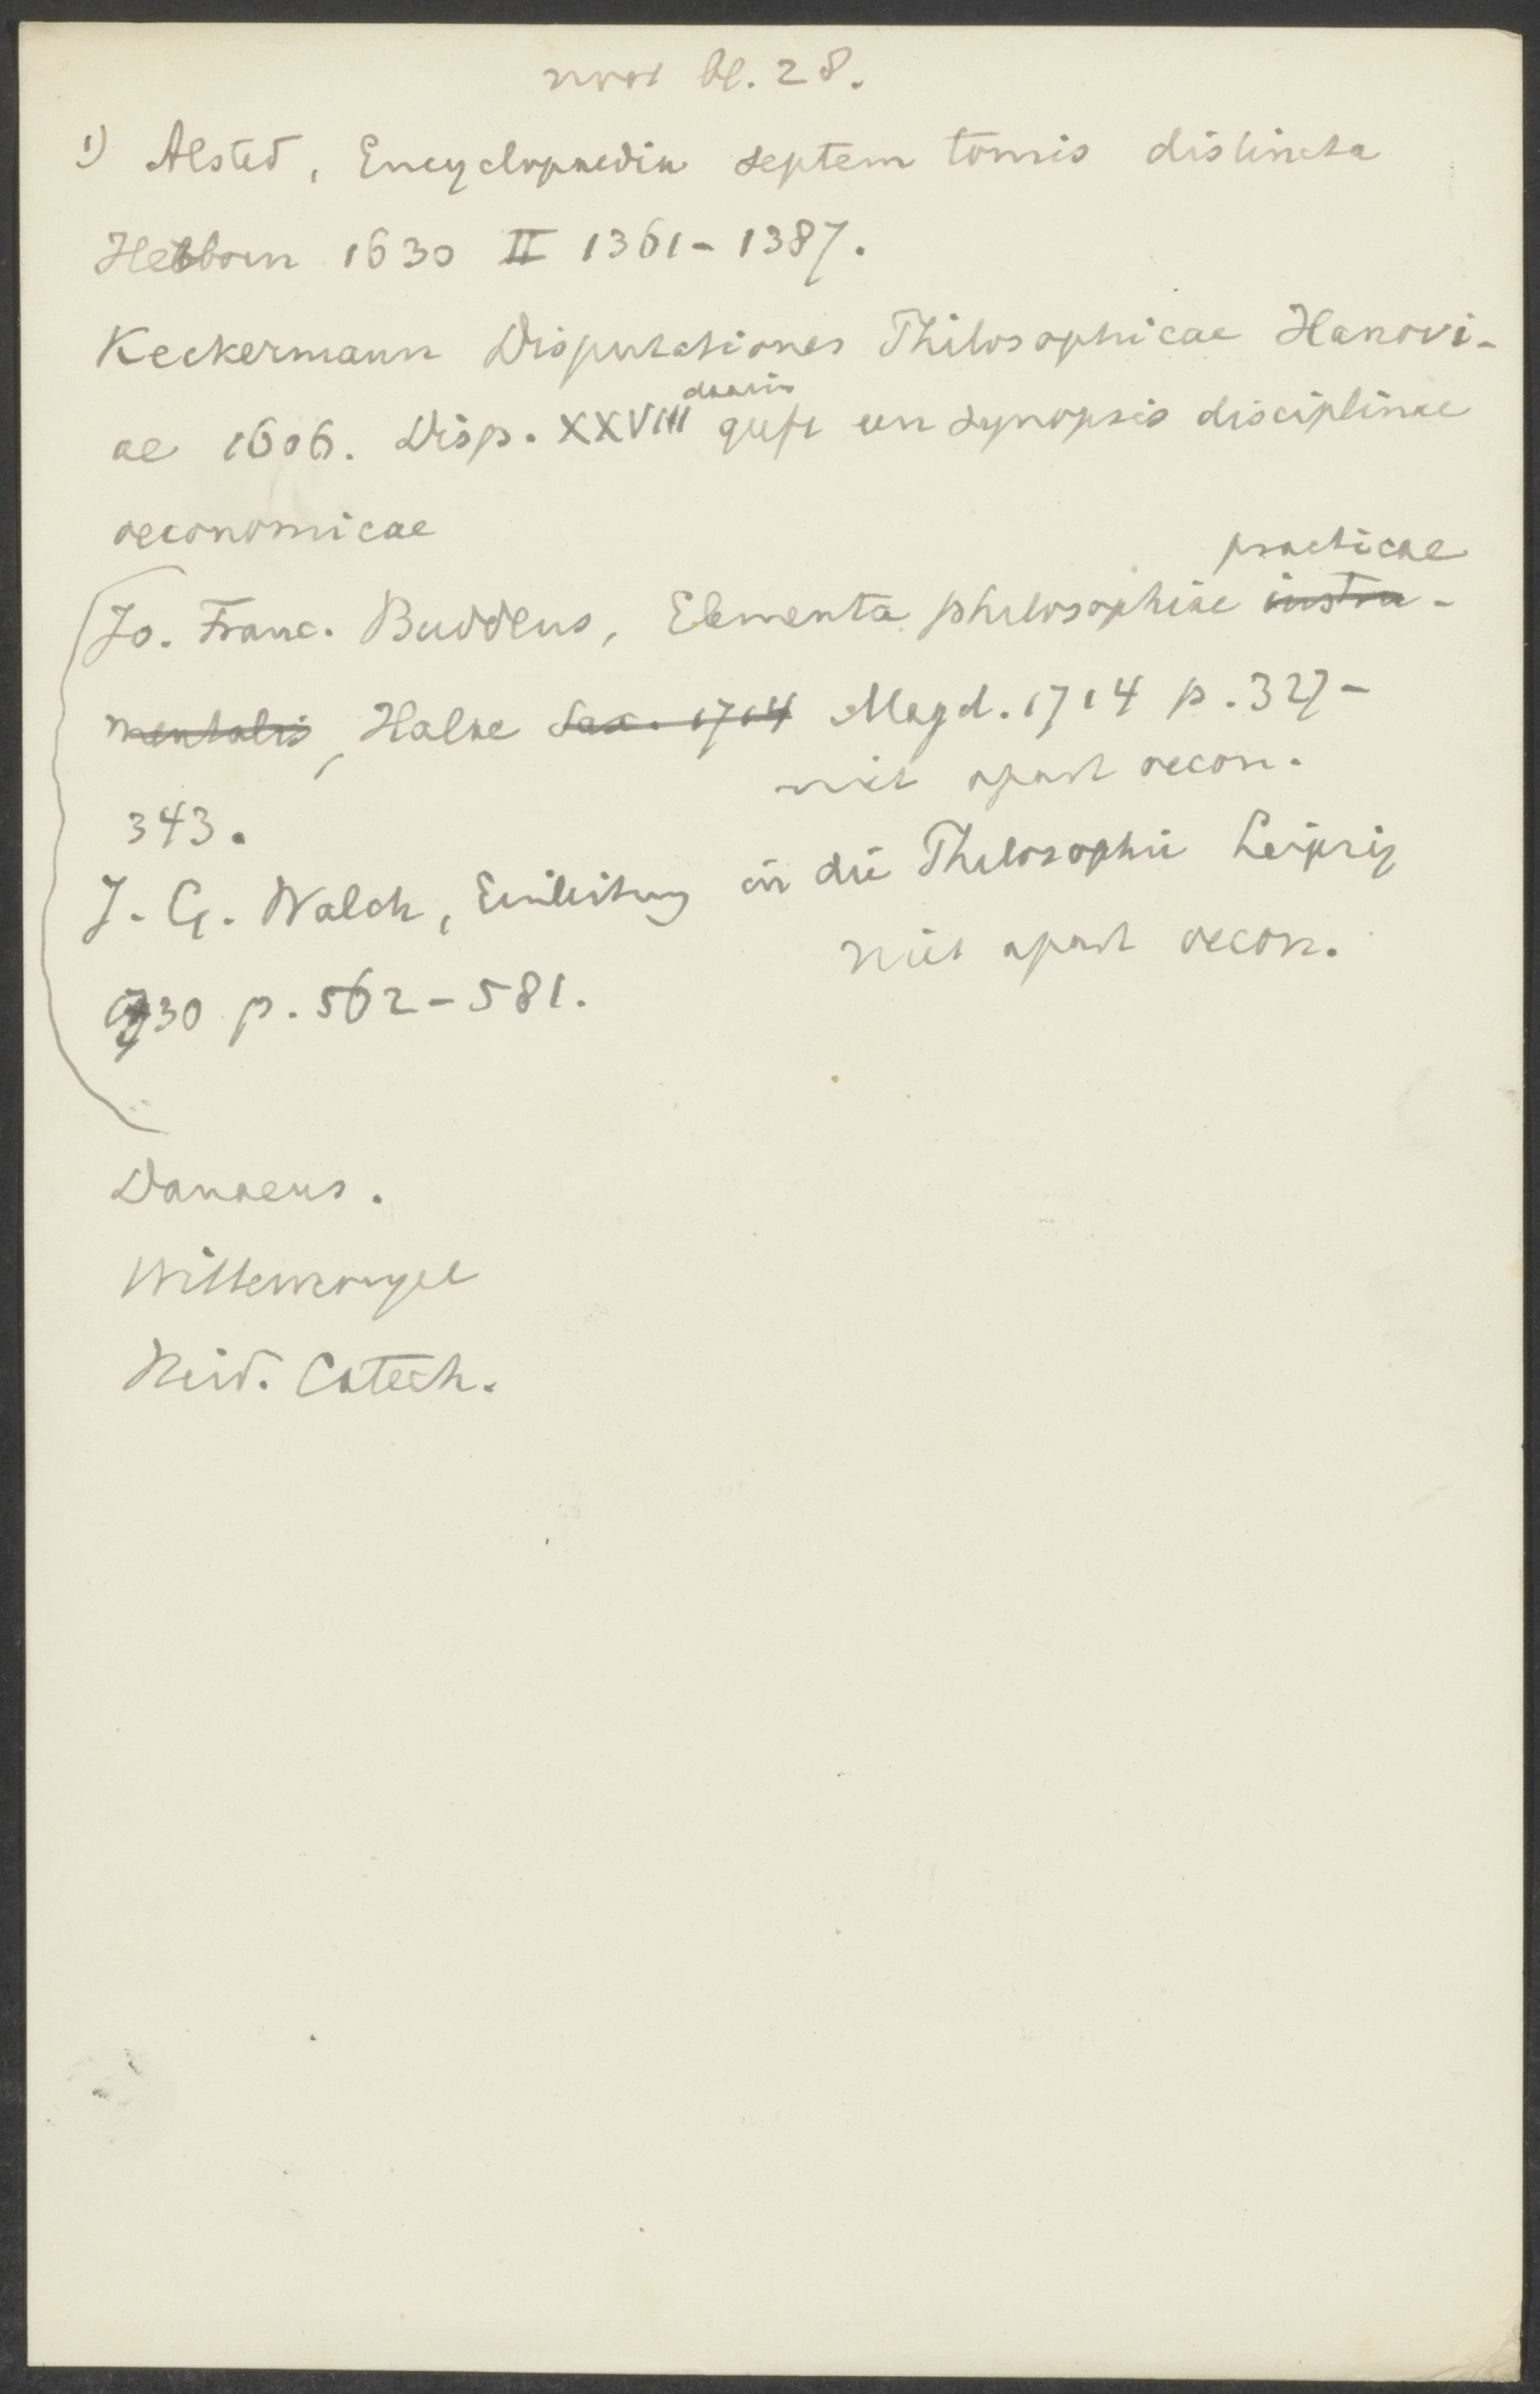 voor bl. 28.
1) Alsted, Encyclopaedia septem tomis distincta
Herborn 1630 II 1361-1387.
Keckermann Disputationes Philosophicae Hanovi-
daarin
ae 1606. Disp. XXVIII geeft een synopsis disciplinae
oeconomicae
practicae
Jo. Franc. Buddeus, Elementa philosophiae instru-
mentalis, Halae Sax. 1714 Magd. 1714 p. 327-
niet apart oecon.
343.
J. G. Walch, Einleitung in die Philosophie Leipzig
niet apart oecon.
1730 p. 562-581.
Danaeus.
Wittewrongel
Heid. Catech.